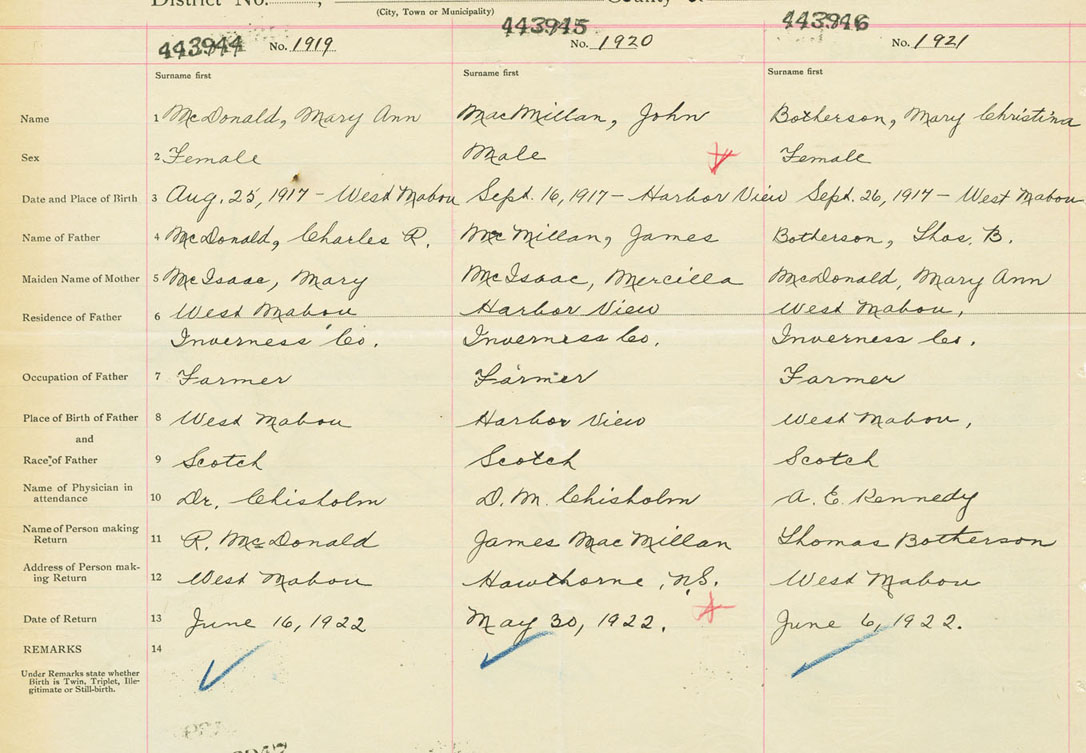 District No.
(City, Town or Municipality)
443944 No. 1919 443945 No. 1920 443946 No. 1921
Surname first Surname first Surname first
Name 1 McDonald, Mary Ann MacMillan, John Botherson, Mary Christina
Sex 2 Female Male Female
Date and Place of Birth 3 Aug. 25, 1917 - West Mabou Sept. 16, 1917 - Harbor View Sept. 26, 1917 - West Mabou
Name of Father 4 McDonald, Charles R. McMillan, James Botherson, Thos. B.
Maiden Name of Mother 5 McIsaac, Mary McIsaac, Mercilla McDonald, Mary Ann
Residence of Father 6 West Mabou Harbor View West Mabou,
Inverness Co. Inverness Co. Inverness Co.
Occupation of Father 7 Farmer Farmer Farmer
Place of Birth of Father 8 West Mabou Harbor View West Mabou,
and
Race of Father 9 Scotch Scotch Scotch
Name of Physician in
attendance 10 Dr. Chisholm D. M. Chisholm A. E. Kennedy
Name of Person making
Return 11 R. McDonald James MacMillan Thomas Botherson
Address of Person mak-
ing Return 12 West Mabou Hawthorne, N.S. West Mabou
Date of Return 13 June 16, 1922 May 30, 1922. June 6, 1922.
REMARKS 14
Under Remarks state whether
Birth is Twin, Triplet, Ille-
gitimate or Still-birth.